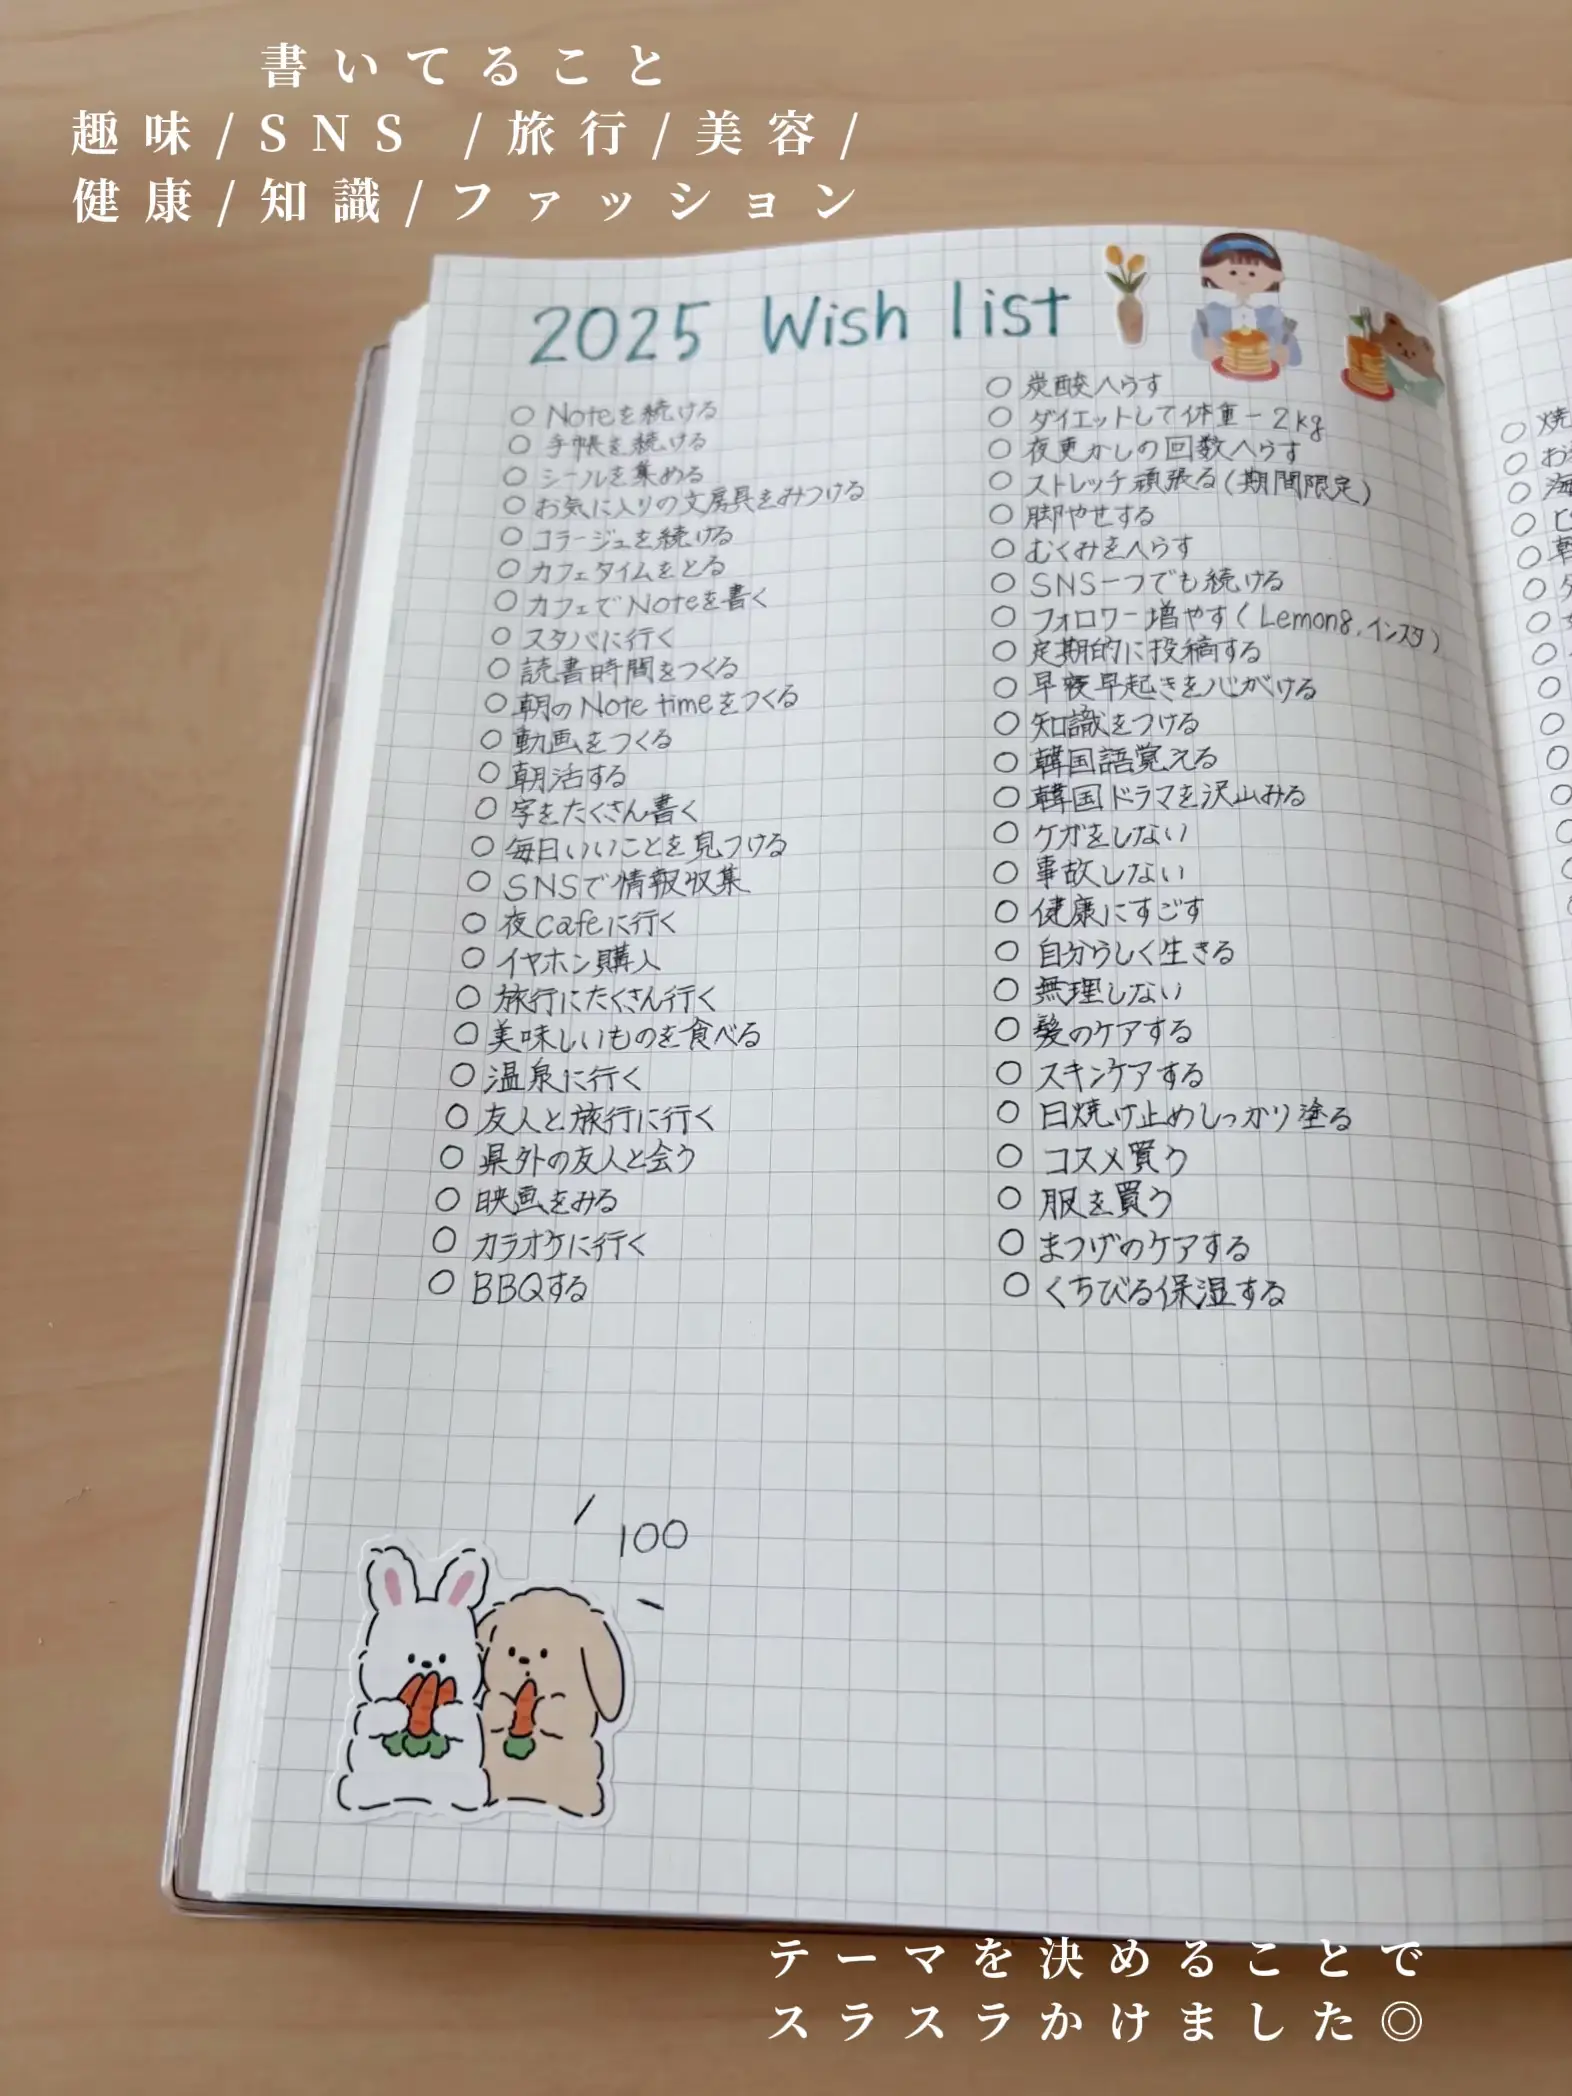 書いてること
趣味/SNS /旅行/美容/
健康/知識/ファッション
2025 Wish list
○ Noteを続ける
○ 手帳を続ける
○ シールを集める
○ お気に入りの文房具をみつける
○ コラージュを続ける
○ カフェタイムをとる
○ カフェでNoteを書く
○ スタバに行く
○ 読書時間をつくる
○ 朝のNote timeをつくる
○ 動画をつくる
○ 朝活する
○ 字をたくさん書く
○ 毎日いいことを見つける
○ SNSで情報収集
○ 夜cafeに行く
○ イヤホン購入
○ 旅行にたくさん行く
○ 美味しいものを食べる
○ 温泉に行く
○ 友人と旅行に行く
○ 県外の友人と会う
○ 映画をみる
○ カラオケに行く
○ BBQする
○ 炭酸へらす
○ ダイエットして体重-2kg
○ 夜更かしの回数へらす
○ ストレッチ頑張る(期間限定)
○ 脚やせする
○ むくみをへらす
○ SNS一つでも続ける
○ フォロワー増やす(Lemon8,インスタ)
○ 定期的に投稿する
○ 早寝早起きを心がける
○ 知識をつける
○ 韓国語覚える
○ 韓国ドラマを沢山みる
○ ケガをしない
○ 事故しない
○ 健康にすごす
○ 自分らしく生きる
○ 無理しない
○ 髪のケアする
○ スキンケアする
○ 日焼け止めしっかり塗る
○ コスメ買う
○ 服を買う
○ まつげのケアする
○ くちびる保湿する
○ 焼
○ お
○ 海
100
テーマを決めることで
スラスラかけました◎